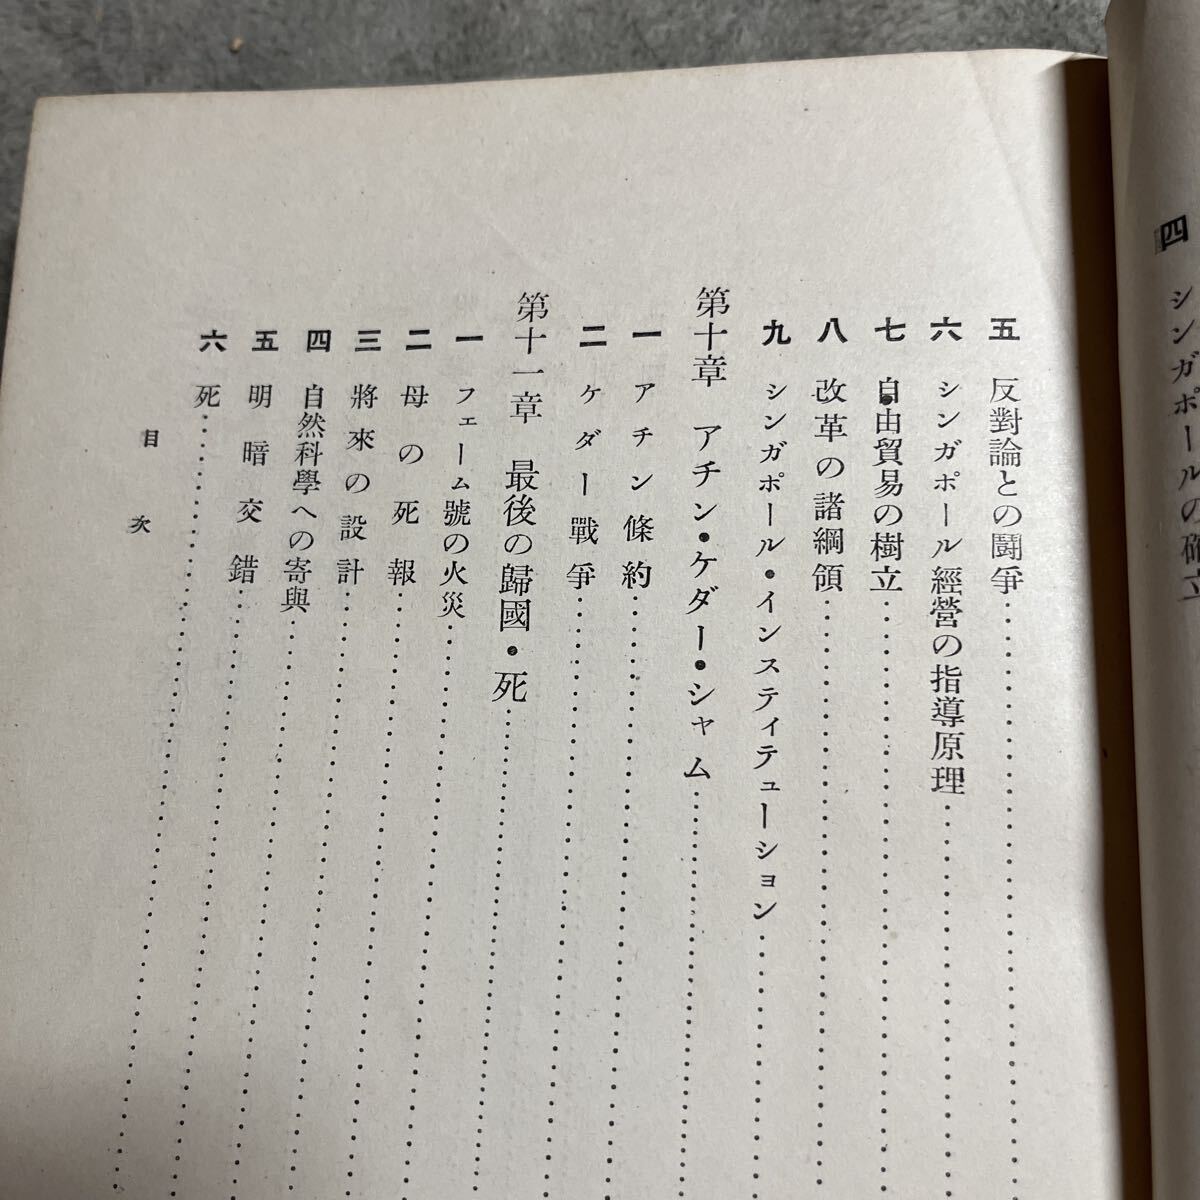 四 シンガポールの確立
五 反對論との鬪爭
六 シンガポール經營の指導原理
七 自由貿易の樹立
八 改革の諸綱領
九 シンガポール・インスティテューション
第十章 アチン・ケダー・シャム
一 アチン條約
二 ケダー戰爭
第十一章 最後の歸國・死
一 フェーム號の火災
二 母の死報
三 將來の設計
四 自然科學への寄與
五 明暗交錯
六 死
目次